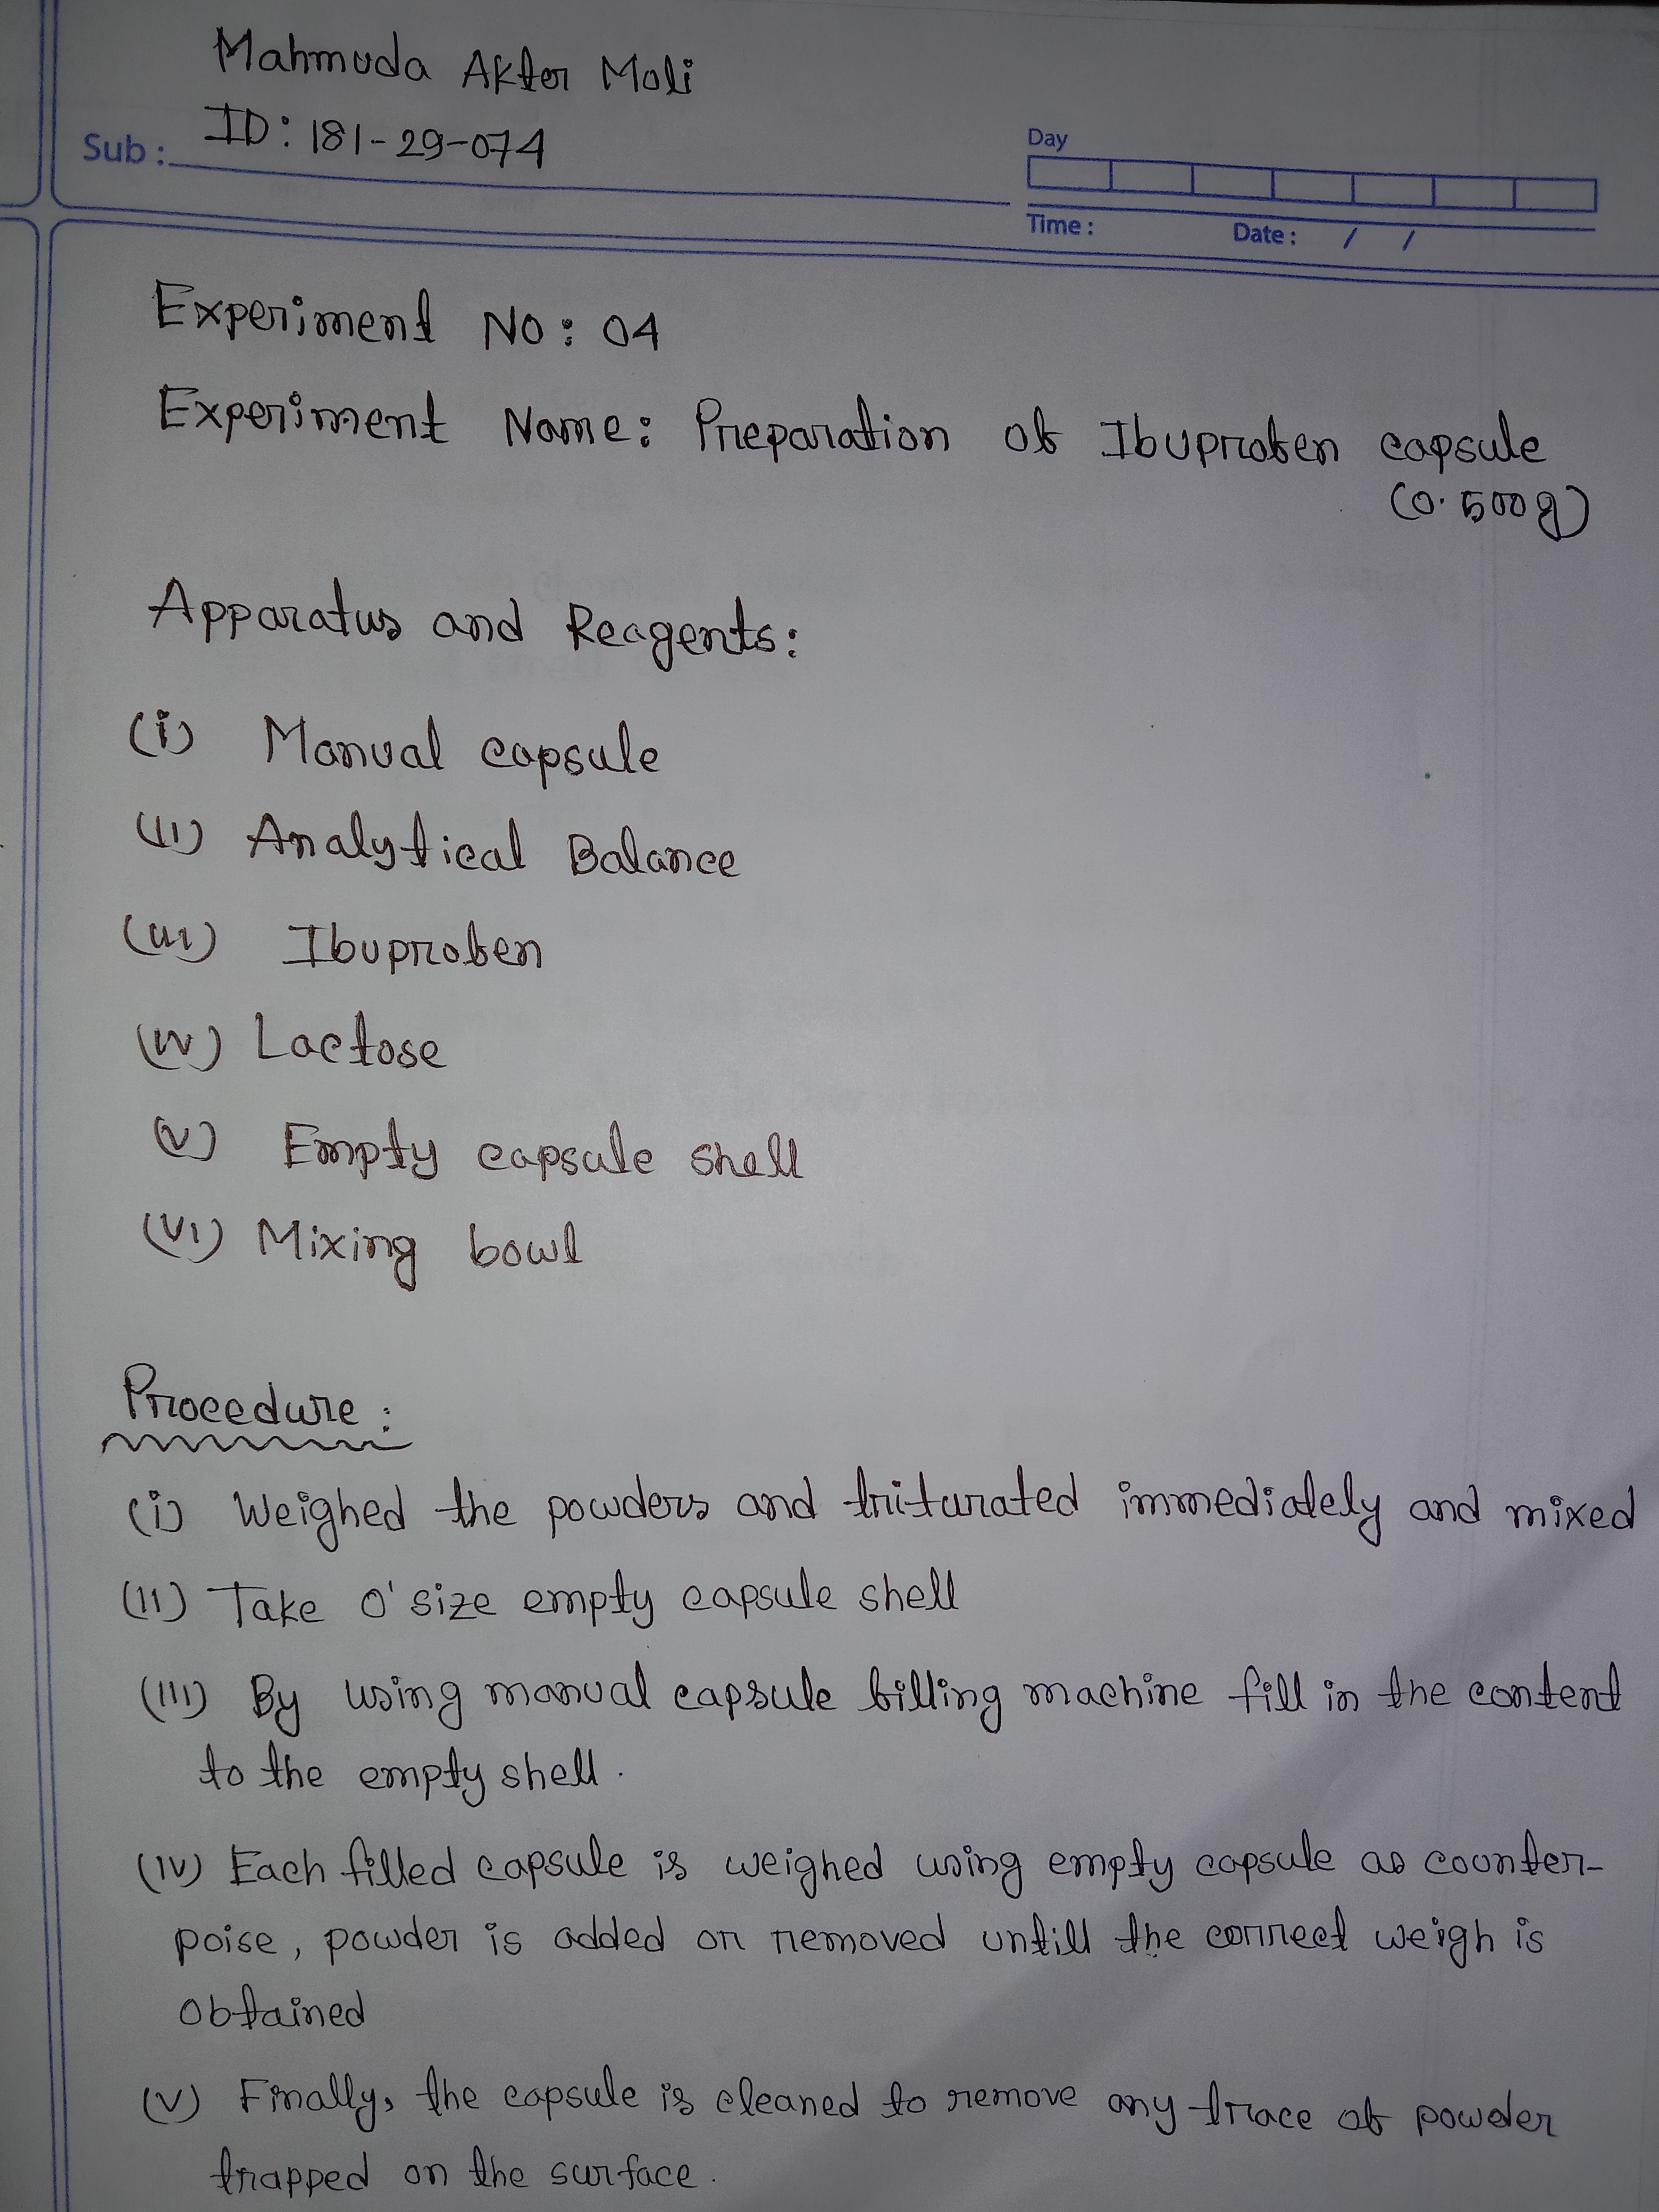 Mahmuda Akter Moli
ID: 181-29-074
Sub :
Day
Time :
Date : / /
Experiment No: 04
Experiment Name: Preparation of Ibuprofen capsule
(0.500g)
Apparatus and Reagents:
(i) Manual capsule
(ii) Analytical Balance
(iii) Ibuprofen
(iv) Lactose
(v) Empty capsule shell
(vi) Mixing bowl
Procedure:
(i) Weighed the powders and triturated immediately and mixed
(ii) Take 0' size empty capsule shell
(iii) By using manual capsule filling machine fill in the content
to the empty shell.
(iv) Each filled capsule is weighed using empty capsule as counter-
poise, powder is added or removed untill the correct weigh is
obtained
(v) Finally, the capsule is cleaned to remove any trace of powder
trapped on the surface.